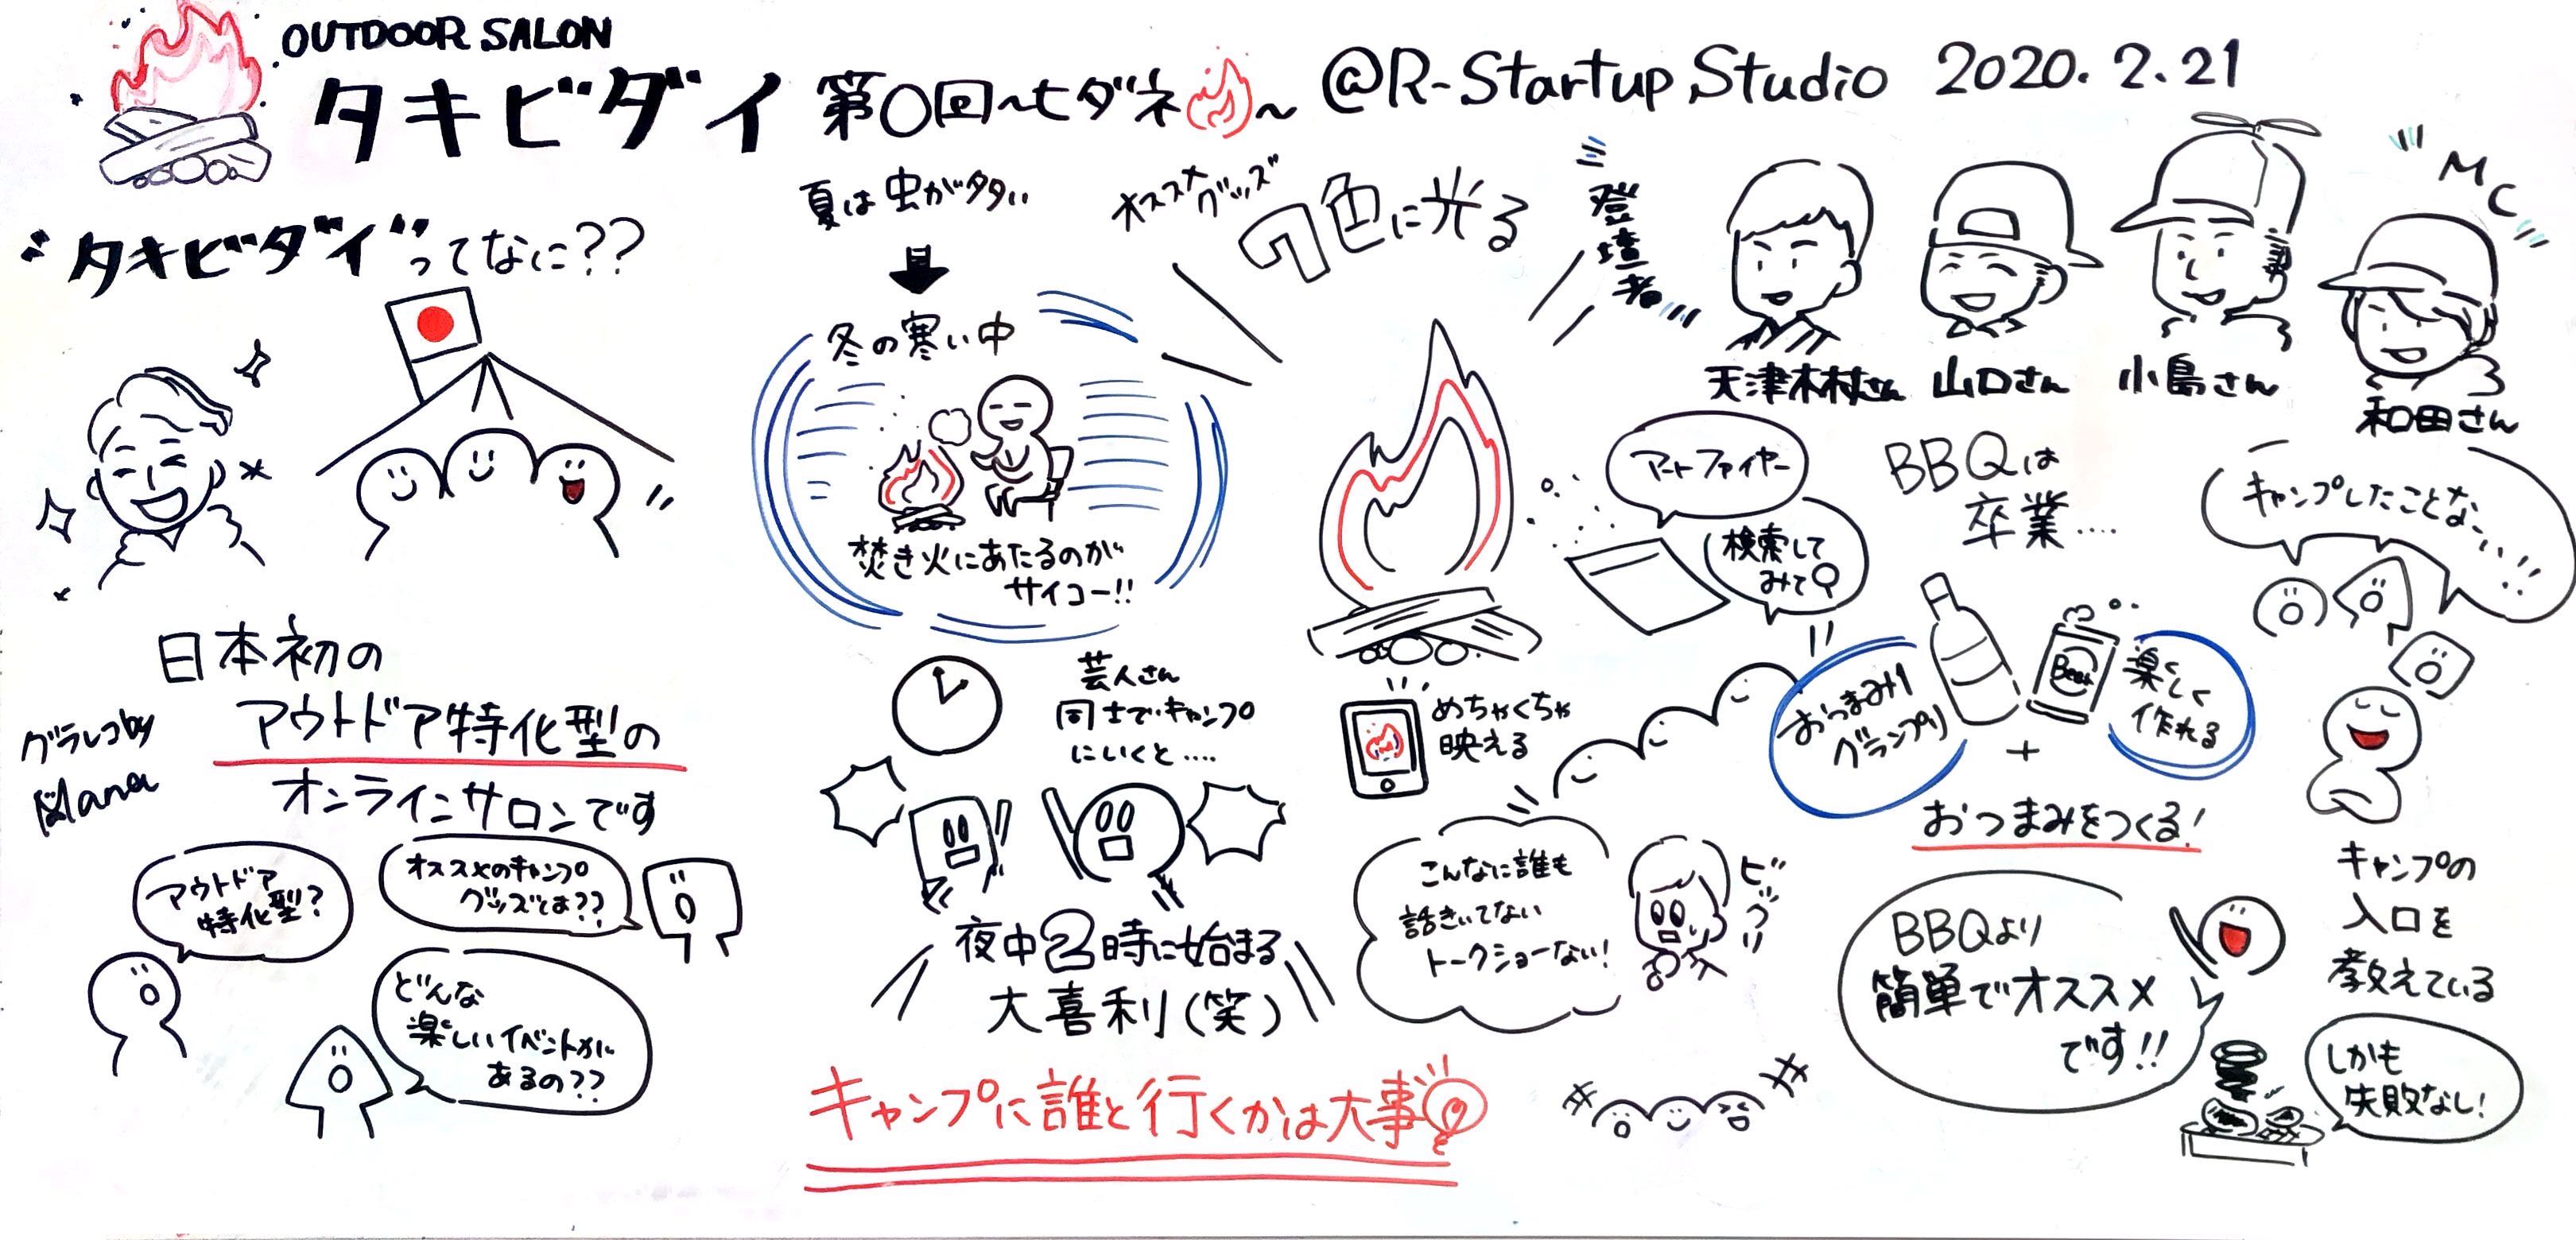 OUTDOOR SALON
タキビダイ 第0回〜ヒダネ〜 @R-Startup Studio 2020.2.21
"タキビダイ"ってなに??
日本初の
アウトドア特化型の
オンラインサロンです
グラレコby
Mana
アウトドア
特化型?
オススメのキャンプ
グッズとは??
どんな
楽しいイベントが
あるの??
夏は虫が多い
冬の寒い中
焚き火にあたるのが
サイコー!!
芸人さん
同士でキャンプ
にいくと....
夜中2時に始まる
大喜利(笑)
キャンプに誰と行くかは大事
オススメ
グッズ
7色に光る
アートファイヤー
検索して
みて
めちゃくちゃ
映える
こんなに誰も
話きいてない
トークショーない!
ビックリ
登壇者
天津木村さん
山口さん
小島さん
MC
和田さん
BBQは
卒業....
おつまみ
グランプリ
Beer
楽しく
作れる
+
おつまみをつくる!
BBQより
簡単でオススメ
です!!
キャンプしたことない...!!
キャンプの
入口を
教えている
しかも
失敗なし!